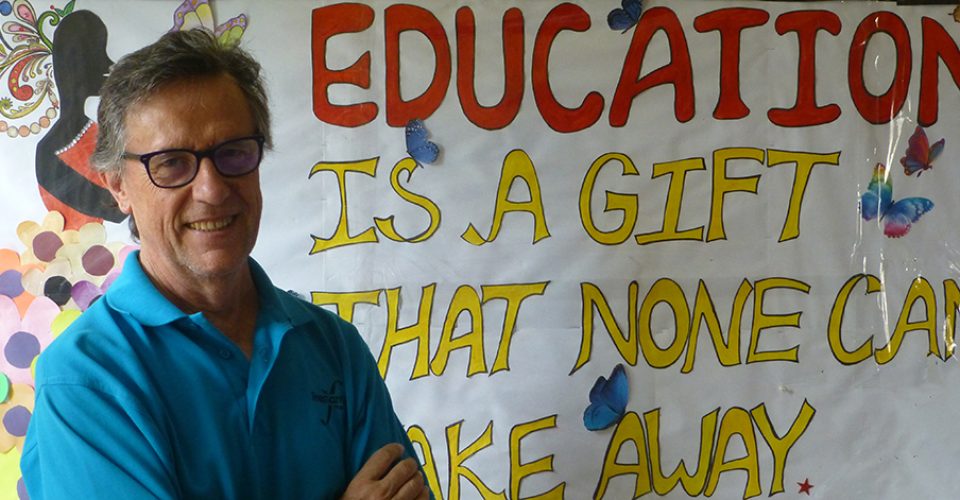 EDUCATION
IS A GIFT
THAT NONE CAN
AKE AWAY.